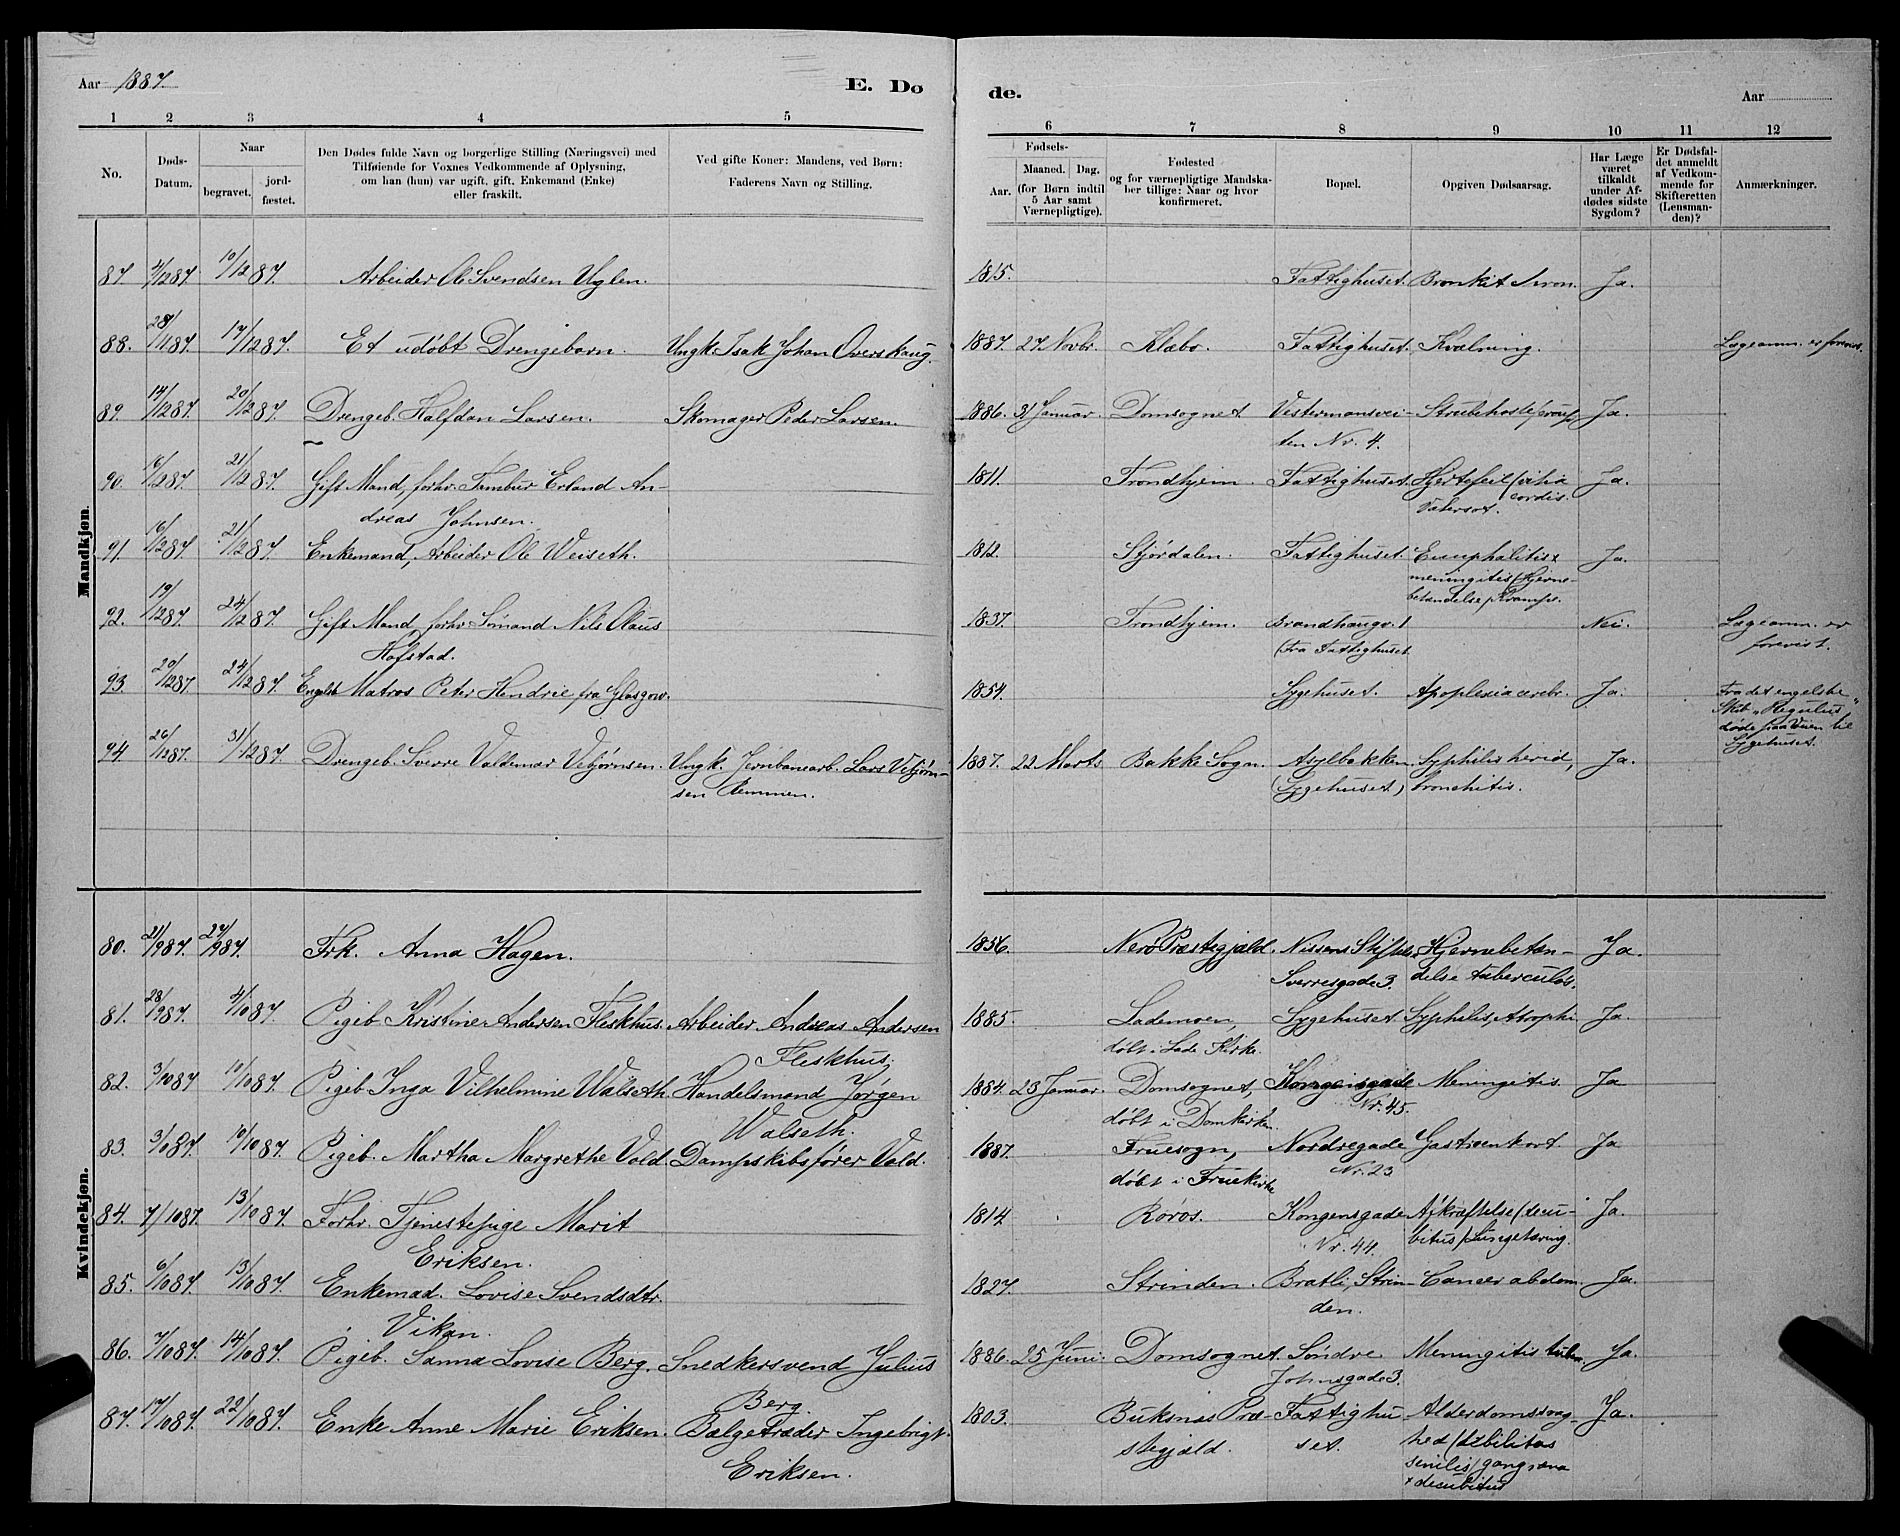 Aar 1887.
E. Dø
de.
Aar
1 2 3 4 5
6 7 8 9 10 11 12
No.
Døds-Datum.
Naar
begravet.
jord-fæstet.
Den Dødes fulde Navn og borgerlige Stilling (Næringsvei) med
Tilføiende for Voxnes Vedkommende af Oplysning,
om han (hun) var ugift, gift, Enkemand (Enke)
eller fraskilt.
Ved gifte Koner: Mandens, ved Børn:
Faderens Navn og Stilling.
Fødsels-
Aar.
Maaned. Dag.
(for Børn indtil
5 Aar samt
Værnepligtige).
Fødested
og for værnepligtige Mandska-
ber tillige: Naar og hvor
konfirmeret.
Bopæl.
Opgiven Dødsaarsag.
Har Læge
været
tilkaldt
under Af-
dødes sidste
Sygdom?
Er Dødsfal-
det anmeldt
af Vedkom-
mende for
Skifteretten
(Lensman-
den)?
Anmærkninger.
Mandkjøn.
87. /12 87. 10/12 87. Arbeider Ole Svendsen Uglen. 1815. Fattighuset. Bronkit Ja.
88. 28/11 87. 17/12 87. Et udøbt Drengebarn. Ungk. Isak Johan Overskaug. 1887. 27 Novbr. Klæbo. Fattighuset. Kvælning. Lægeanm. er forevist.
89. 14/12 87. 20/12 87. Drengeb. Halfdan Larsen. Skomager Peder Larsen. 1886. 31 Januar. Domsognet Vestermansvei- Strubehoste/croup Ja.
ten Nr. 4.
90. 16/12 87. 21/12 87. Gift Mand, forhv. Tambur Erland An- 1811. Trondhjem. Fattighuset. Hjertefeil (vitia Ja.
dreas Johnsen. cordis.
Vatersot.
91. 16/12 87. 21/12 87. Enkemand, Arbeider Ole Weiseth. 1812. Stjørdalen. Fattighuset. Encephalitis & Ja.
meningitis (Hjerne-
betændelse, Krampe.
92. 19/12 87. 24/12 87. Gift Mand forhv. Sømand Nils Olaus 1837. Trondhjem. Brandhaugv. 1 Nei. Lægeanm. er
Hofstad. (Fra Fattighuset forevist.
93. 20/12 87. 24/12 87. Engelsk Matros Peter Hendrie fra Glasgow. 1854. Sygehuset. Apoplexia cerebr. Ja. Fra det engelske
Skib "Regulus"
døde paa Veien til
Sygehuset.
94. 26/12 87. 31/12 87. Drengeb. Sverre Valdemar Vebjørnsen. Ungk. Jernbanearb. Lars Vebjørn- 1887. 22 Marts Bakke Sogn. Asylbakken Syphilis hered, Ja.
sen Remmen. (Sygehuset) bronchitis.
Kvindekjøn.
80. 21/9 87. 27/9 87. Frk. Anna Hagen. 1856. Nerø Præstegjæld. Nissens Stiftelse Hjernebetæn- Ja.
Sverresgade 3. delse tuberculøs.
81. 28/9 87. 4/10 87. Pigeb. Kristine Andersen Fleskhus. Arbeider Andreas Andersen 1885. Lademoen, Sygehuset Syphilis, Atrophi Ja.
Fleskhus. døbt i Lade Kirke.
82. 3/10 87 11/10 87. Pigeb. Inga Vilhelmine Walseth. Handelsmand Jørgen 1884. 23 Januar. Domsognet, Kongensgade Meningitis. Ja
Walseth. døbt i Domkirken. Nr. 45.
83. 3/10 87. 10/10 87. Pigeb. Martha Margrethe Vold Dampskibsfører Vold. 1887. Fruesogn, Nordregade Gastroenkort. Ja
døbt i Fruekirke Nr. 23
84. 7/10 87. 13/10 87. Forhv. Tjenestepige Marit 1814 Røros. Kongensgade Afkræftelse/decu- Ja.
Eriksen. Nr. 44. bitus/Lungetæring.
85. 6/10 87. 13/10 87. Enkemad. Lovise Svendsdtr. 1827. Strinden. Bratli, Strin- Cancer abdom. Ja.
Vikan. den.
86. 7/10 87. 14/10 87. Pigeb. Sanna Lovise Berg. Snedkersvend Julius 1886. 25 Juni. Domsognet. Søndre Meningitis tuber. Ja.
Berg. Johnsgade 3.
87. 17/10 87. 22/10 87. Enke Anne Marie Eriksen. Bælgetræder Ingebrigt 1803. Buksnæs Præ- Fattighu Alderdomssvag- Ja.
Eriksen. stegjæld. set. hed/debilitas
senilis/gangræna
& decubitus